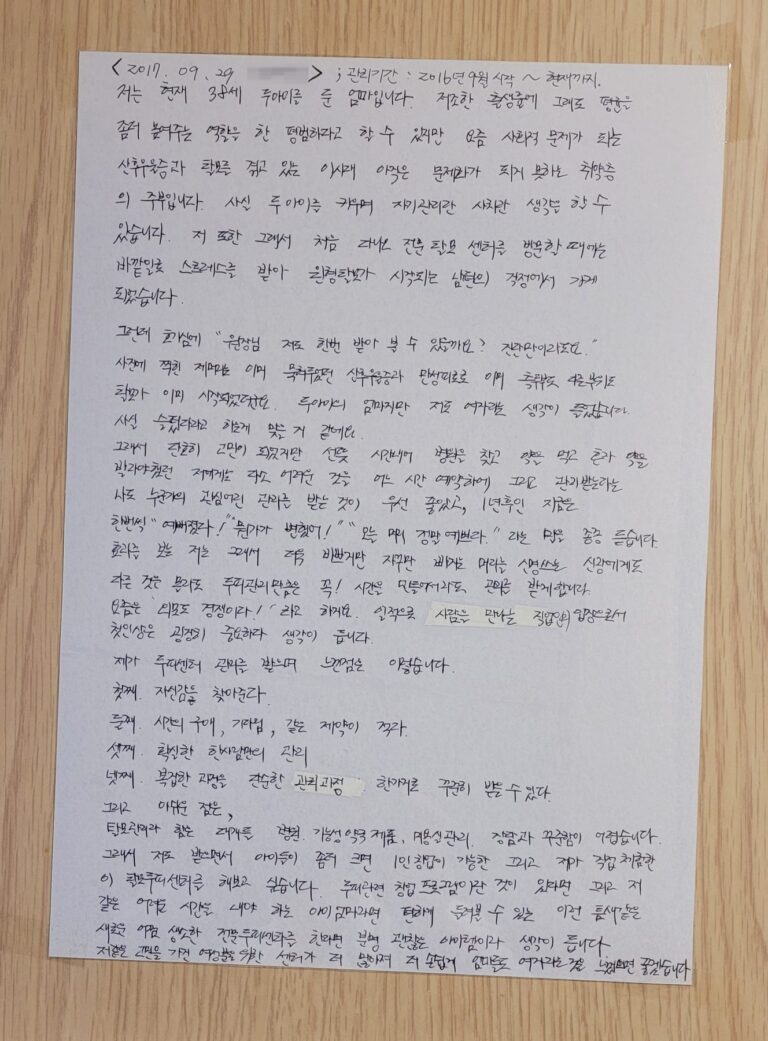 < 2017. 09. 29 > ; 관리기간 : 2016년 9월 시작 ~ 현재까지.
저는 현재 38세 두아이를 둔 엄마입니다. 저조한 출생률에 그래도 평균을
좀더 높여주는 역할을 한 평범하다고 할 수 있지만 요즘 사회적 문제가 되는
산후우울증과 탈모를 겪고 있는 이시대 아직은 문제화가 되지 못하는 취약층
의 주부입니다. 사실 두아이를 키우며 자기관리란 사치란 생각을 할 수
있습니다. 저 또한 그래서 처음 전문 탈모 센터를 방문할 때에는
바깥일로 스트레스를 받아 원형탈모가 시작되는 남편의 걱정에서 가게
되었습니다.
그런데 호기심에 "원장님 저도 한번 받아 볼 수 있을까요? 진단만이라도요."
사진에 찍힌 제머리는 이미 묵혀두었던 산후우울증과 만성피로로 이미
탈모가 이미 시작되었더군요. 두아이의 엄마지만 저도 여자라는 생각이 들었습니다.
사실 슬펐다라고 하는게 맞을 거 같네요.
그래서 단순히 고민이 되었지만 선뜻 시간내어 병원을 찾고 약을 먹고 혼자 약을
발라야했던 저에게는 다소 어려운 것을 어느 시간 예약하에 그리고 관리받는다는
나도 누군가의 관심어린 관리를 받는 것이 우선 좋았고, 1년후인 지금은
한번씩 "예뻐졌다!" "뭔가가 변했어!" "오늘 머리 정말 예쁘다." 라는 말을 종종 듣습니다.
효과를 보는 저는 그래서 더욱 바쁘지만 자꾸만 빠지는 머리를 신경쓰는 신랑에게도
다른 것은 몰라도 두피관리만큼은 꼭! 시간을 만들어서라도 관리를 받게합니다.
요즘은 '외모도 경쟁이다!' 라고 하지요. 일적으로 사람을 만나는 직업인의 입장으로서
첫인상은 굉장히 중요하다 생각이 듭니다.
제가 두피센터 관리를 받으며 느낀점은 이렇습니다.
첫째. 자신감을 찾아준다.
둘째. 시간의 구애, 기다림, 같은 제약이 적다.
셋째. 확실한 한사람만의 관리
넷째. 복잡한 과정을 단순한 관리과정 한가지로 꾸준히 받을 수 있다.
그리고 아쉬운 점은,
탈모관리라 함은 대개를 병원. 기능성약국제품, 미용실관리. 장담과 꾸준함이 어렵습니다.
그래서 저도 받으면서 아이들이 좀더 크면 1인창업이 가능한 그리고 제가 직접 체험한
이 탈모두피센터를 해보고 싶습니다. 두피관련 창업 프로그램이란 것이 있다면 그리고 저
같은 어려운 시간을 내야 하는 아이엄마라면 편하게 들여볼 수 있는 이런 틈새같은
새로운 어쩜 생소한 전문두피센터를 한다면 분명 괜찮은 아이템이라 생각이 듭니다.
저같은 고민을 가진 여성분을 위한 센터가 더 많아져 더 손쉽게 엄마들도 여자라는것을 느꼈으면 좋겠습니다